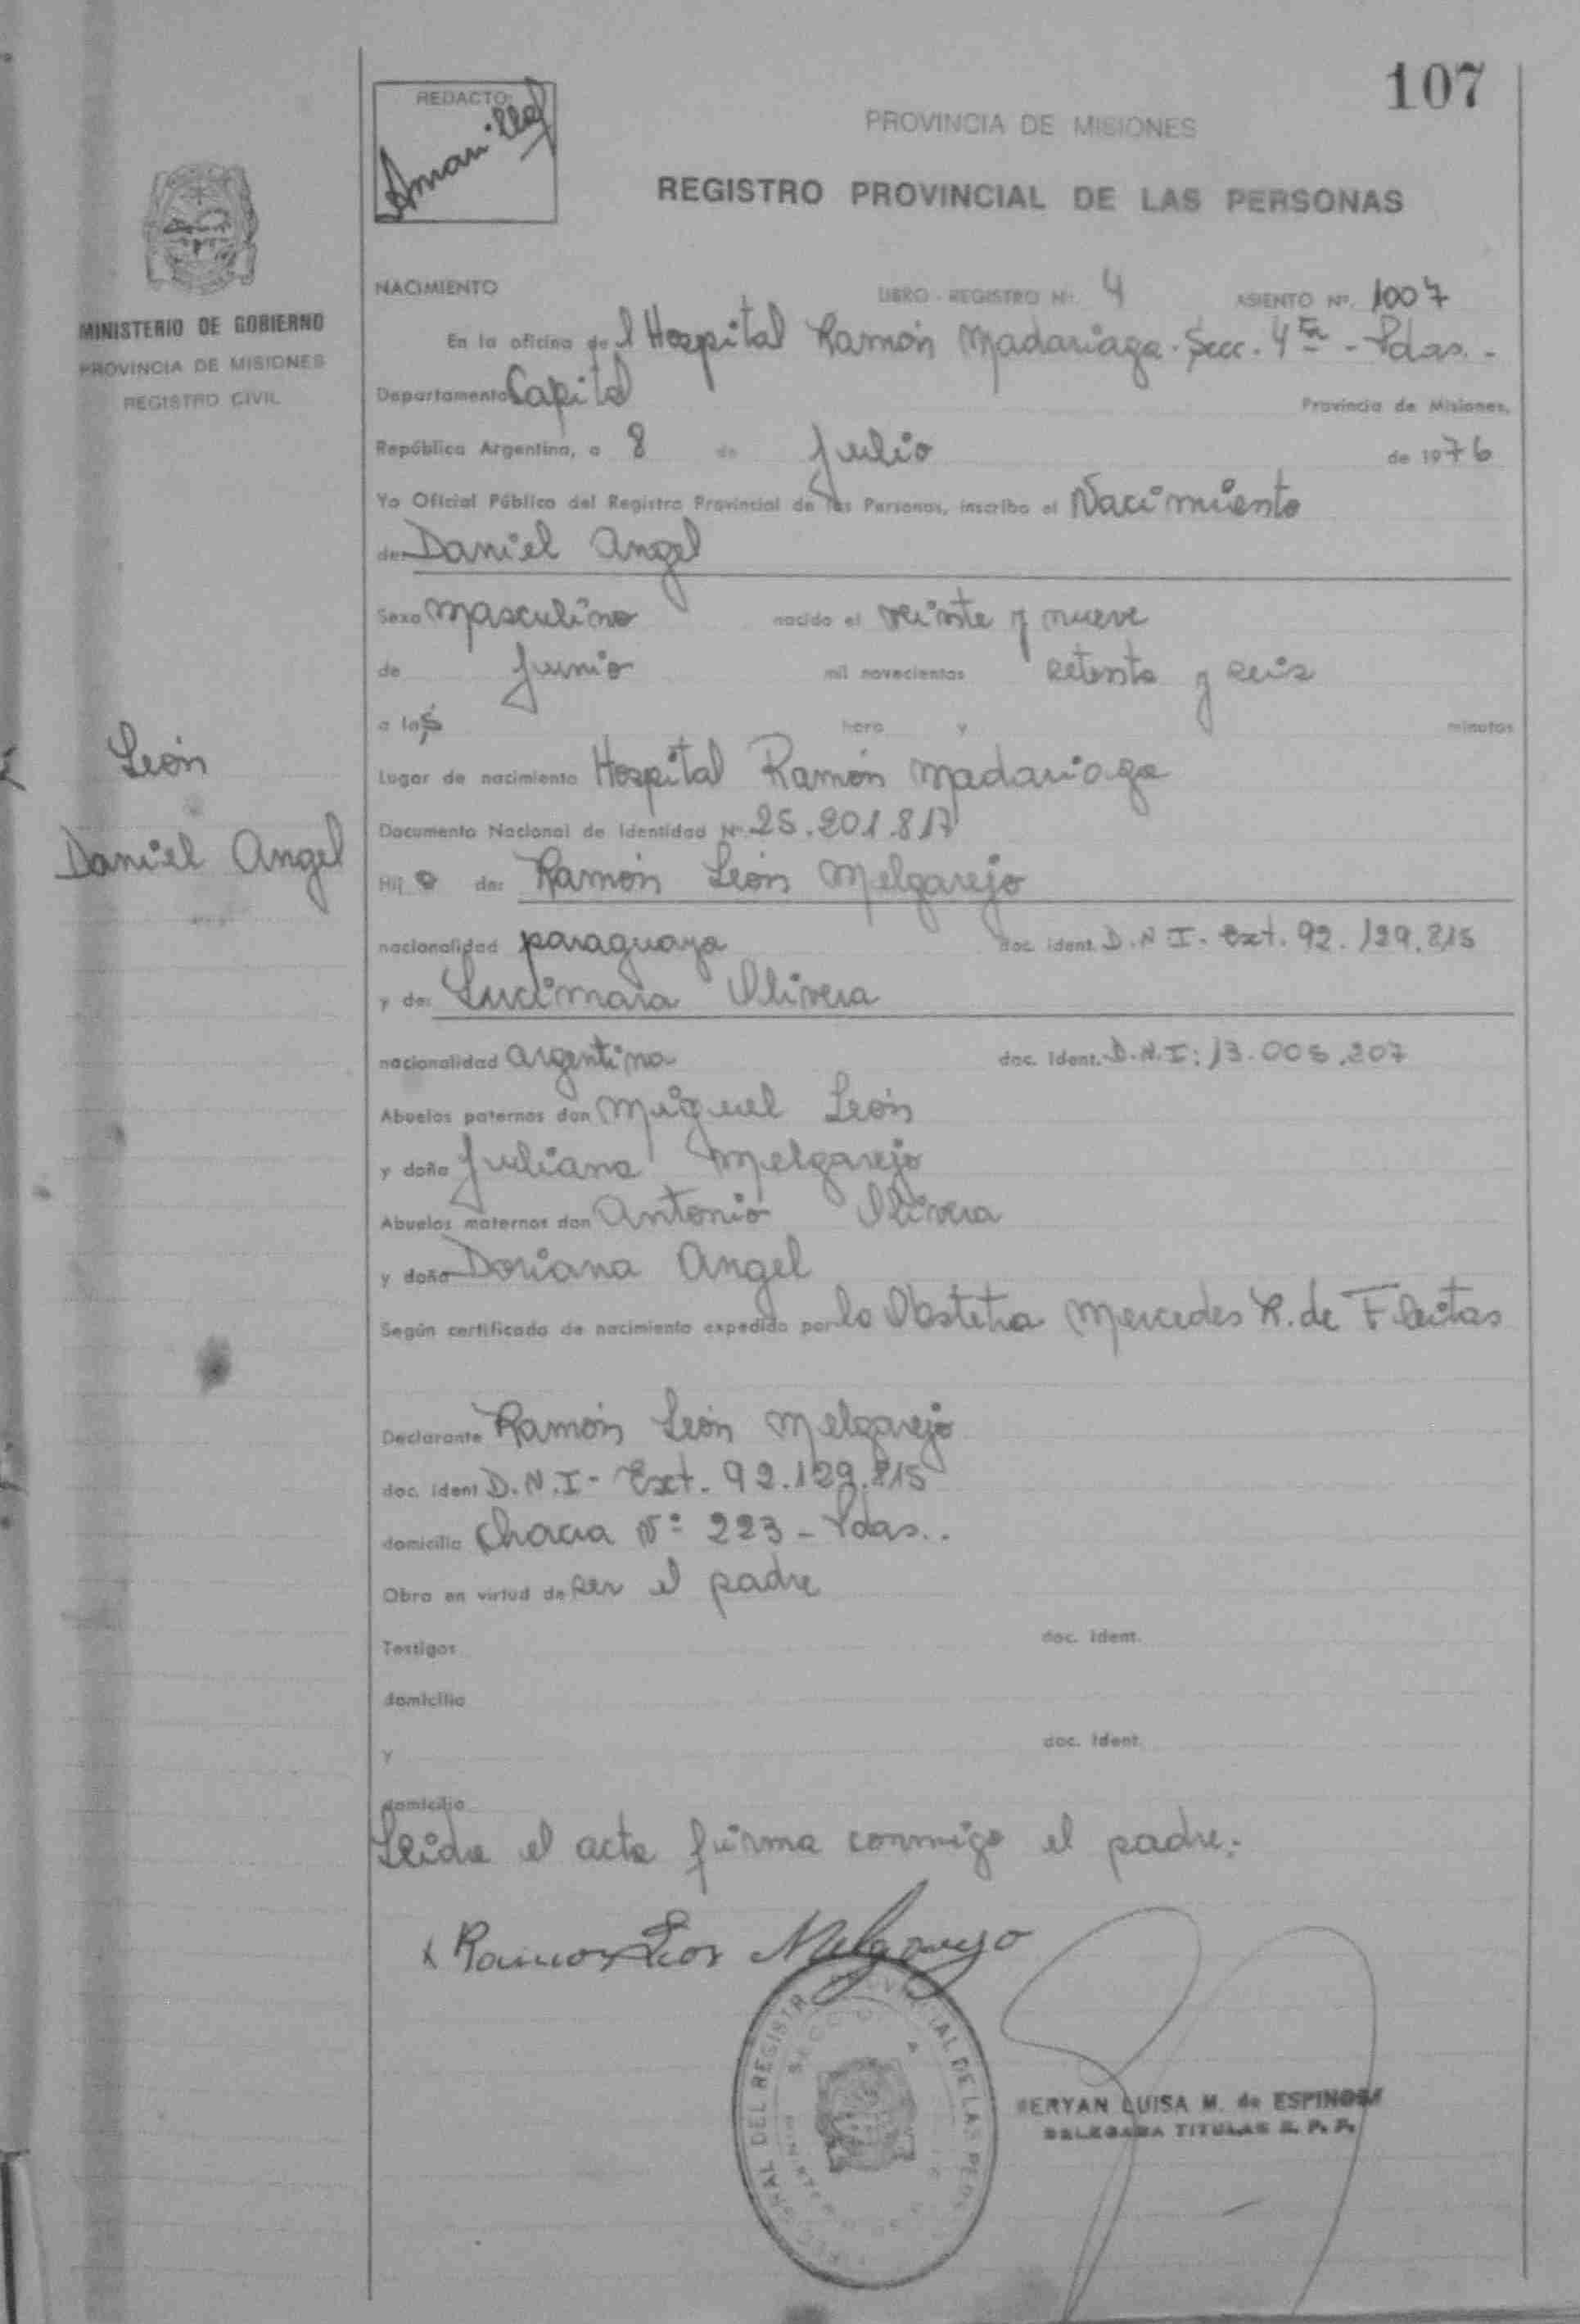 107
REDACTO:
PROVINCIA DE MISIONES
REGISTRO PROVINCIAL DE LAS PERSONAS
MINISTERIO DE GOBIERNO
PROVINCIA DE MISIONES
REGISTRO CIVIL
NACIMIENTO LIBRO - REGISTRO Nº. 4 ASIENTO Nº. 1007
En la oficina del Hospital Ramón Madariaga. Secc. 4ta - Pdas. -
Departamento Capital Provincia de Misiones,
República Argentina, a 8 de Julio de 1976
Yo Oficial Público del Registro Provincial de las Personas, inscribo el Nacimiento
de: Daniel Angel
Sexo Masculino nacido el veinte y nueve
de Junio mil novecientos setenta y seis
a las hora y minutos
León
Lugar de nacimiento Hospital Ramón Madariaga
Documento Nacional de Identidad Nº 25.201.817
Daniel Angel
Hijo de: Ramón León Melgarejo
nacionalidad paraguaya doc. ident. D.N.I. Ext. 92.129.815
y de: Lucimara Olivera
nacionalidad argentina doc. ident. D.N.I: 13.005.207
Abuelos paternos don Miguel León
y doña Juliana Melgarejo
Abuelos maternos don Antonio Olivera
y doña Doriana Angel
Según certificado de nacimiento expedido por la Obstetra Mercedes R. de Fleitas
Declarante Ramón León Melgarejo
doc. ident D.N.I- Ext. 92.129.815
domicilio Chacra Nº 223 - Pdas..
Obra en virtud de ser el padre
Testigos doc. ident.
domicilio
y doc. ident.
domicilio
Leída el acta firma conmigo el padre.-
x Ramon Leon Melgarejo
DEL REGISTRO PROVINCIAL DE LAS PERSONAS
LUISA M. de ESPINOSA
DELEGADA TITULAR R. P. P.